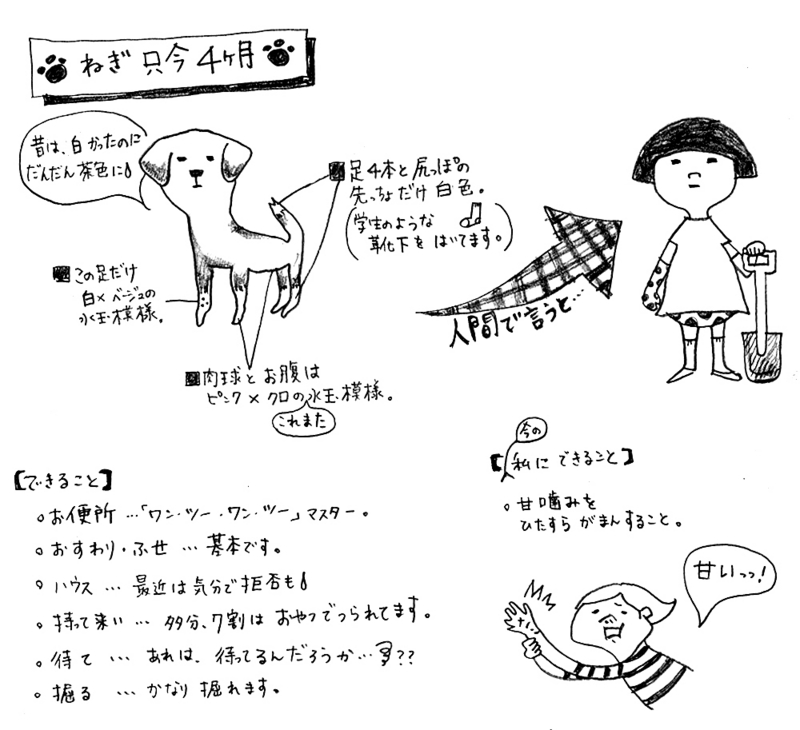 ねぎ 只今 4ヶ月
昔は、白かったのに
だんだん茶色に
足4本と尻っぽの
先っちょだけ 白色。
(学生のような
靴下を はいてます。)
この足だけ
白×ベージュの
水玉模様。
人間で言うと…
肉球と お腹は
ピンク×クロの水玉模様。
これまた
【できること】
お便所 …「ワン・ツー・ワン・ツー」マスター。
おすわり・ふせ … 基本です。
ハウス … 最近は気分で拒否も
持って来い … 多分、7割は おやつでつられてます。
待て … あれは、待ってるんだろうか…??
掘る … かなり 掘れます。
今の
【私に できること】
甘噛みを
ひたすら がまんすること。
甘いっっ!